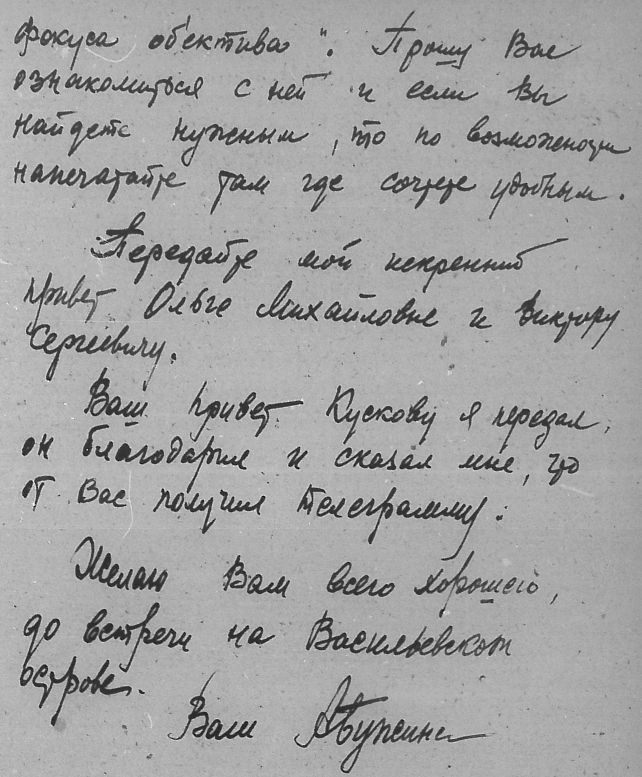 фокуса объектива". Прошу Вас
ознакомиться с ней и если Вы
найдете нужным, то по возможности
напечатайте там где сочтете удобным.
Передайте мой искренний
привет Ольге Михайловне и Виктору
Сергеевичу.
Ваш привет Кускову я передал,
он благодарил и сказал мне, что
от Вас получил телеграмму.
Желаю Вам всего хорошего,
до встречи на Васильевском
острове.
Ваш